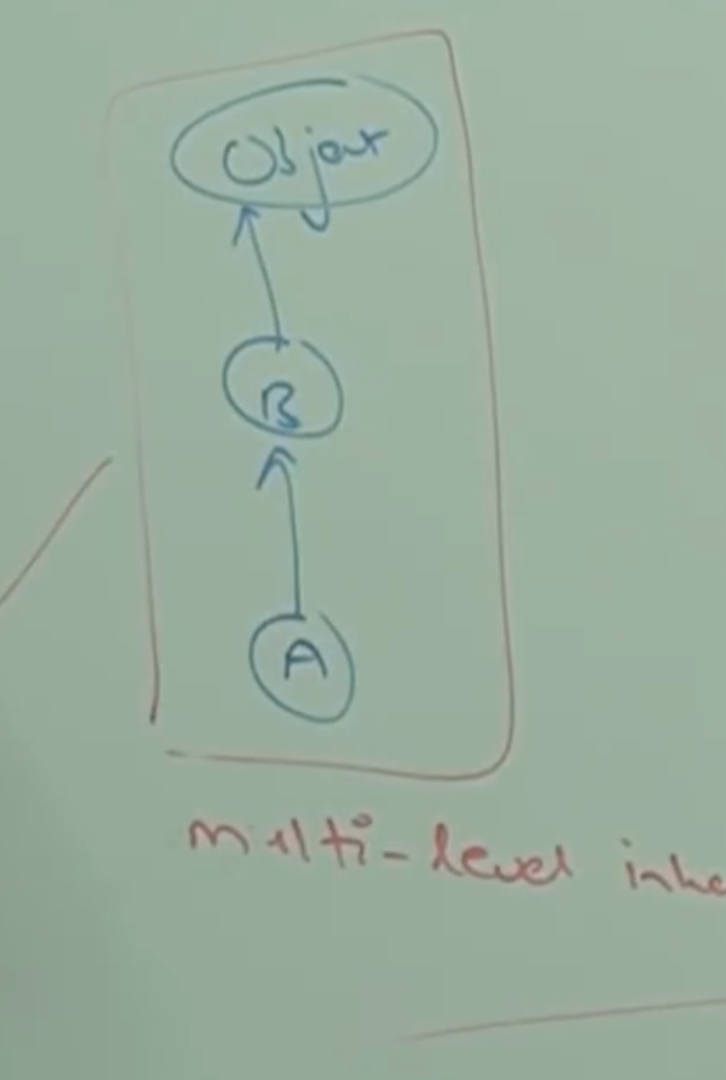 Object
B
A
multi-level inhe